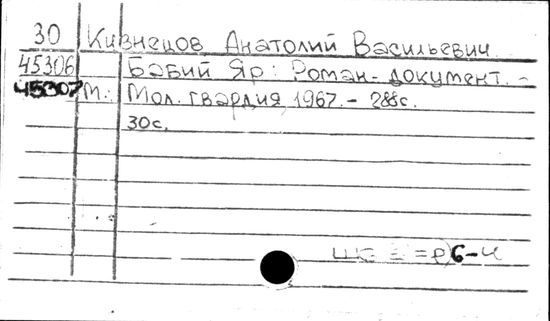 30 Кузнецов Анатолий Васильевич
45306 Бабий Яр: Роман-документ. –
45307 М.: Мол. гвардия, 1967. – 288с.
30с.
6-4